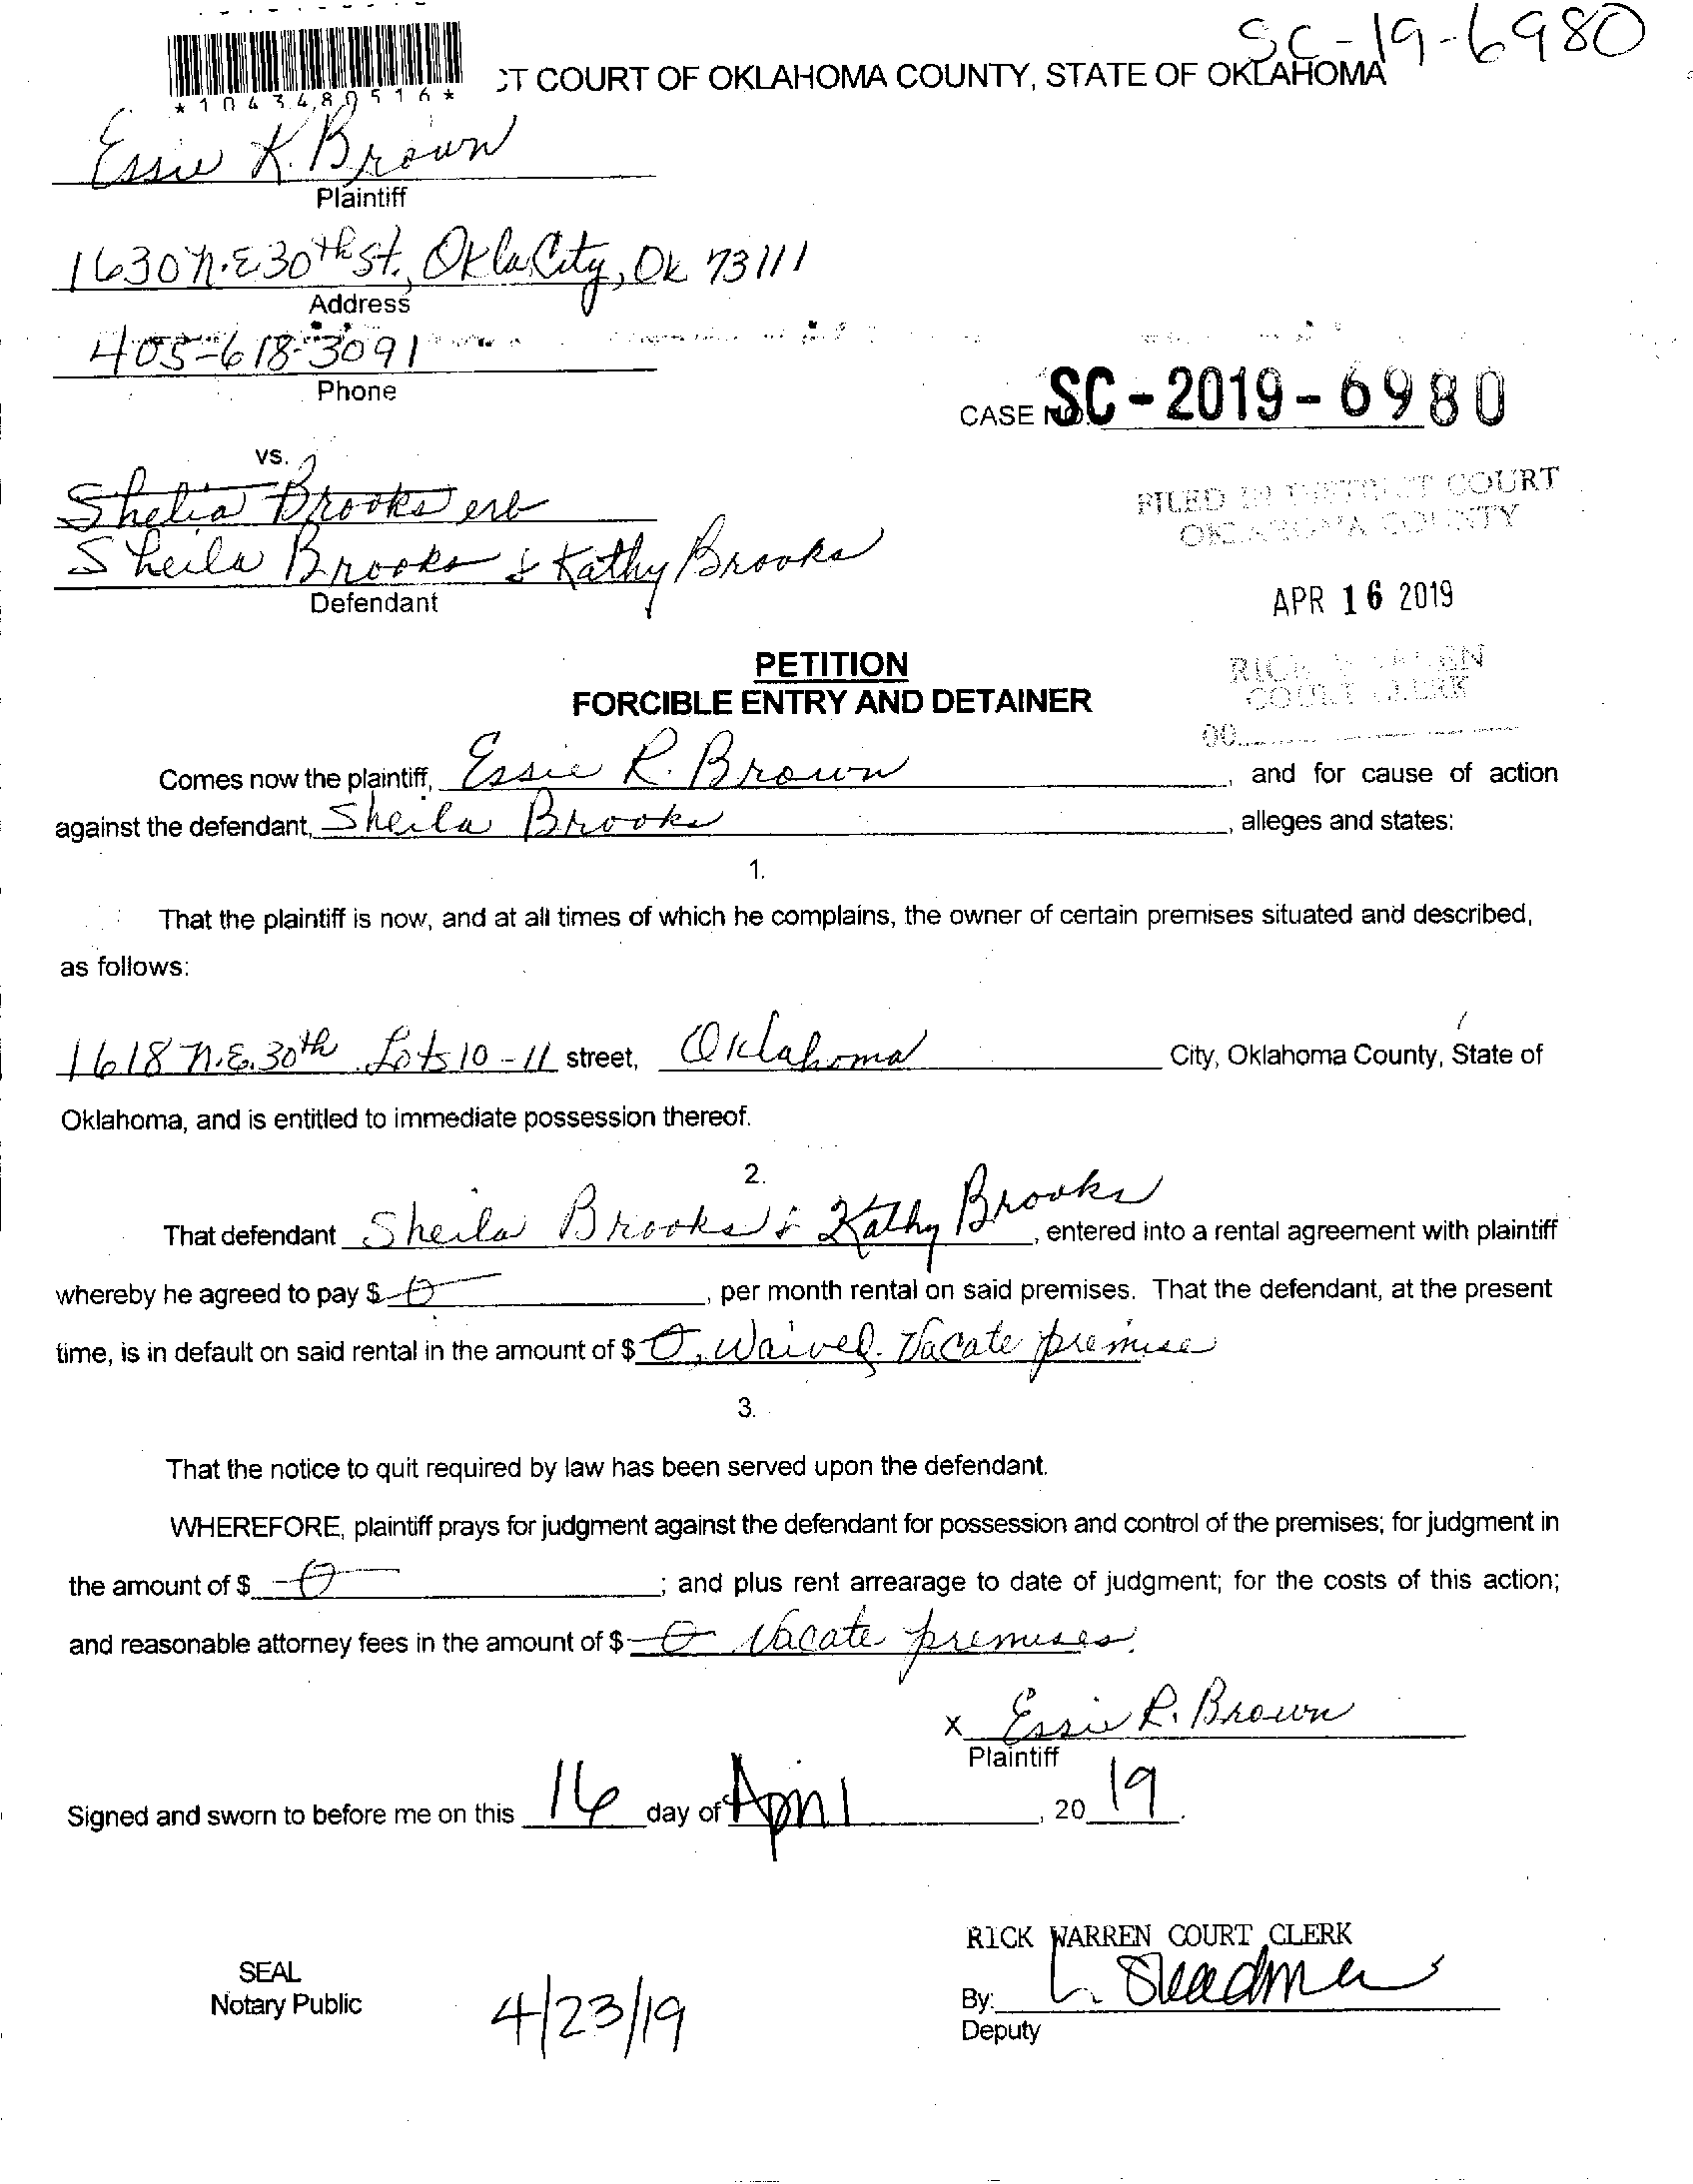 SC-19-6980
*1043480516*
CT COURT OF OKLAHOMA COUNTY, STATE OF OKLAHOMA
Essie R. Brown
Plaintiff
1630 N.E 30th St., Okla City, Ok 73111
Address
405-618-3091
Phone
CASE NO. SC-2019-6980
vs.
Shelia Brooks erb
Sheila Brooks & Kathy Brooks
Defendant
FILED IN DISTRICT COURT
OKLAHOMA COUNTY
APR 16 2019
PETITION
FORCIBLE ENTRY AND DETAINER
RICK WARREN
COURT CLERK
Comes now the plaintiff, Essie R. Brown, and for cause of action
against the defendant, Sheila Brooks, alleges and states:
1.
That the plaintiff is now, and at all times of which he complains, the owner of certain premises situated and described,
as follows:
1618 N.E. 30th Lots 10-11 street, Oklahoma City, Oklahoma County, State of
Oklahoma, and is entitled to immediate possession thereof.
2.
That defendant Sheila Brooks & Kathy Brooks, entered into a rental agreement with plaintiff
whereby he agreed to pay $ 0, per month rental on said premises. That the defendant, at the present
time, is in default on said rental in the amount of $ 0, Waived. Vacate premise
3.
That the notice to quit required by law has been served upon the defendant.
WHEREFORE, plaintiff prays for judgment against the defendant for possession and control of the premises; for judgment in
the amount of $ 0; and plus rent arrearage to date of judgment; for the costs of this action;
and reasonable attorney fees in the amount of $ 0 Vacate premises.
x Essie R. Brown
Plaintiff
Signed and sworn to before me on this 16 day of April, 2019.
RICK WARREN COURT CLERK
SEAL
Notary Public
4/23/19
By:
Deputy